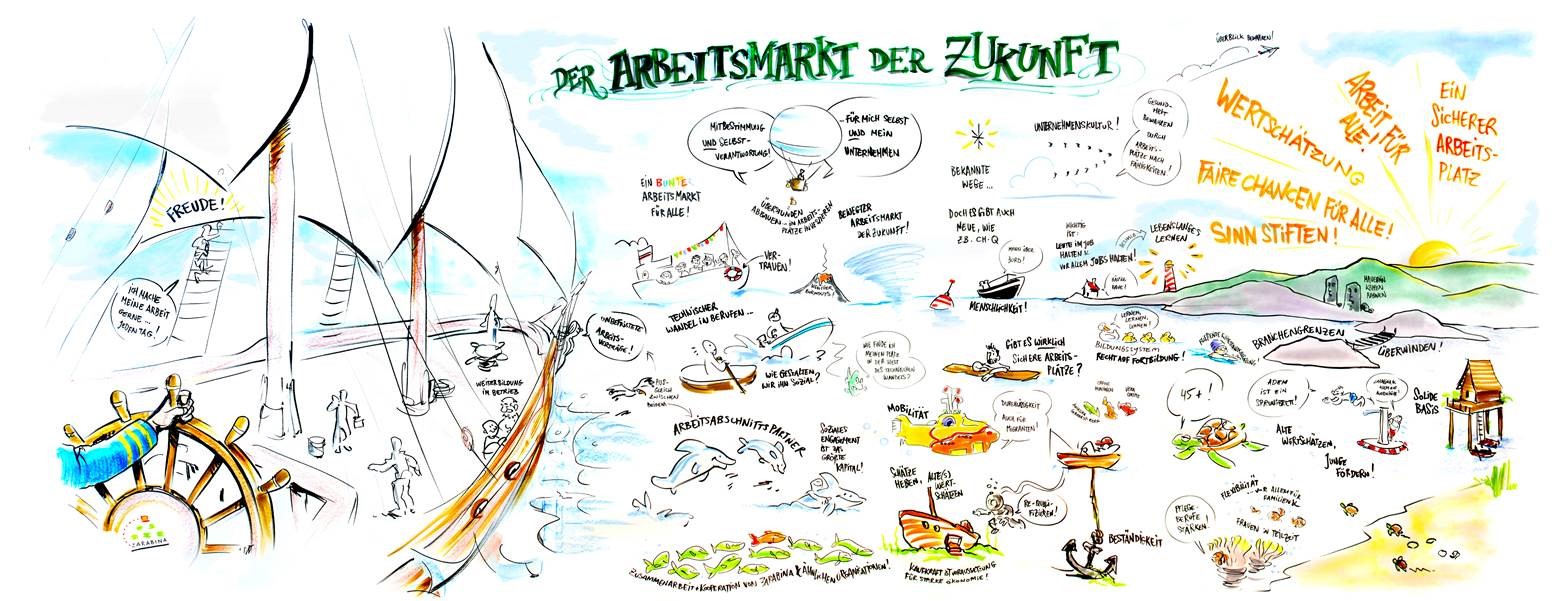 DER ARBEITSMARKT DER ZUKUNFT
FREUDE!
ICH MACHE
MEINE ARBEIT
GERNE ...
JEDEN TAG!
ZARABINA
WEITERBILDUNG
IM BETRIEB
UNBEFRISTETE
ARBEITS-
VERTRÄGE!
AUS-
GLEICH
ZWISCHEN
MITBESTIMMUNG
UND SELBST-
VERANTWORTUNG!
FÜR MICH SELBST
UND MEIN
UNTERNEHMEN
EIN BUNTER
ARBEITSMARKT
FÜR ALLE!
ÜBERSTUNDEN
ABBAUEN - IN ARBEITS-
PLÄTZE INVESTIEREN
BEWEGTER
ARBEITSMARKT
DER ZUKUNFT!
VER-
TRAUEN!
TECHNISCHER
WANDEL IN BERUFEN...
WIE GESTALTEN
WIR IHN SOZIAL?
WIE FINDE ICH
MEINEN PLATZ
IN DER WELT
DES TECHNISCHEN
WANDELS?
ARBEITSABSCHNITTSPARTNER
SOZIALES
ENGAGEMENT
IST DAS
GRÖSSTE
KAPITAL!
ZUSAMMENARBEIT + KOOPERATION VON ZARABINA & ÄHNLICHEN ORGANISATIONEN!
BEKANNTE
WEGE ...
DOCH ES GIBT AUCH
NEUE, WIE
Z.B. CH-Q
UNTERNEHMENSKULTUR!
GESUND-
HEIT
BEWAHREN
DURCH
ARBEITS-
PLÄTZE NACH
FÄHIGKEITEN!
ÜBERBLICK BEWAHREN!
MANN ÜBER
BORD!
MENSCHLICHKEIT!
WICHTIG
IST:
LEUTE IM JOB
HALTEN &
VOR ALLEM JOBS HALTEN!
LEBENSLANGES
LERNEN
WERTSCHÄTZUNG
ARBEIT FÜR
ALLE!
EIN
SICHERER
ARBEITS-
PLATZ
FAIRE CHANCEN FÜR ALLE!
SINN STIFTEN!
GIBT ES WIRKLICH
SICHERE ARBEITS-
PLÄTZE?
LERNEN,
LERNEN,
LERNEN!
BILDUNGSSYSTEM
RECHT AUF FORTBILDUNG!
BRANCHENGRENZEN
ÜBERWINDEN!
MOBILITÄT
DURCHLÄSSIGKEIT
AUCH FÜR
MIGRANTEN!
45+!
ADEM
IST EIN
SPRUNGBRETT!
ALTE
WERTSCHÄTZEN,
JUNGE
FÖRDERN!
SOLIDE
BASIS
SCHÄTZE
HEBEN,
ALTE(S)
WERT-
SCHÄTZEN
RE-QUALI-
FIZIEREN!
KAUFKRAFT IST VORAUSSETZUNG
FÜR STARKE ÖKONOMIE!
BESTÄNDIGKEIT
PFLEGE-
BERUFE
STÄRKEN!
FLEXIBILITÄT
... VOR ALLEM FÜR
FAMILIEN &
FRAUEN IN TEILZEIT